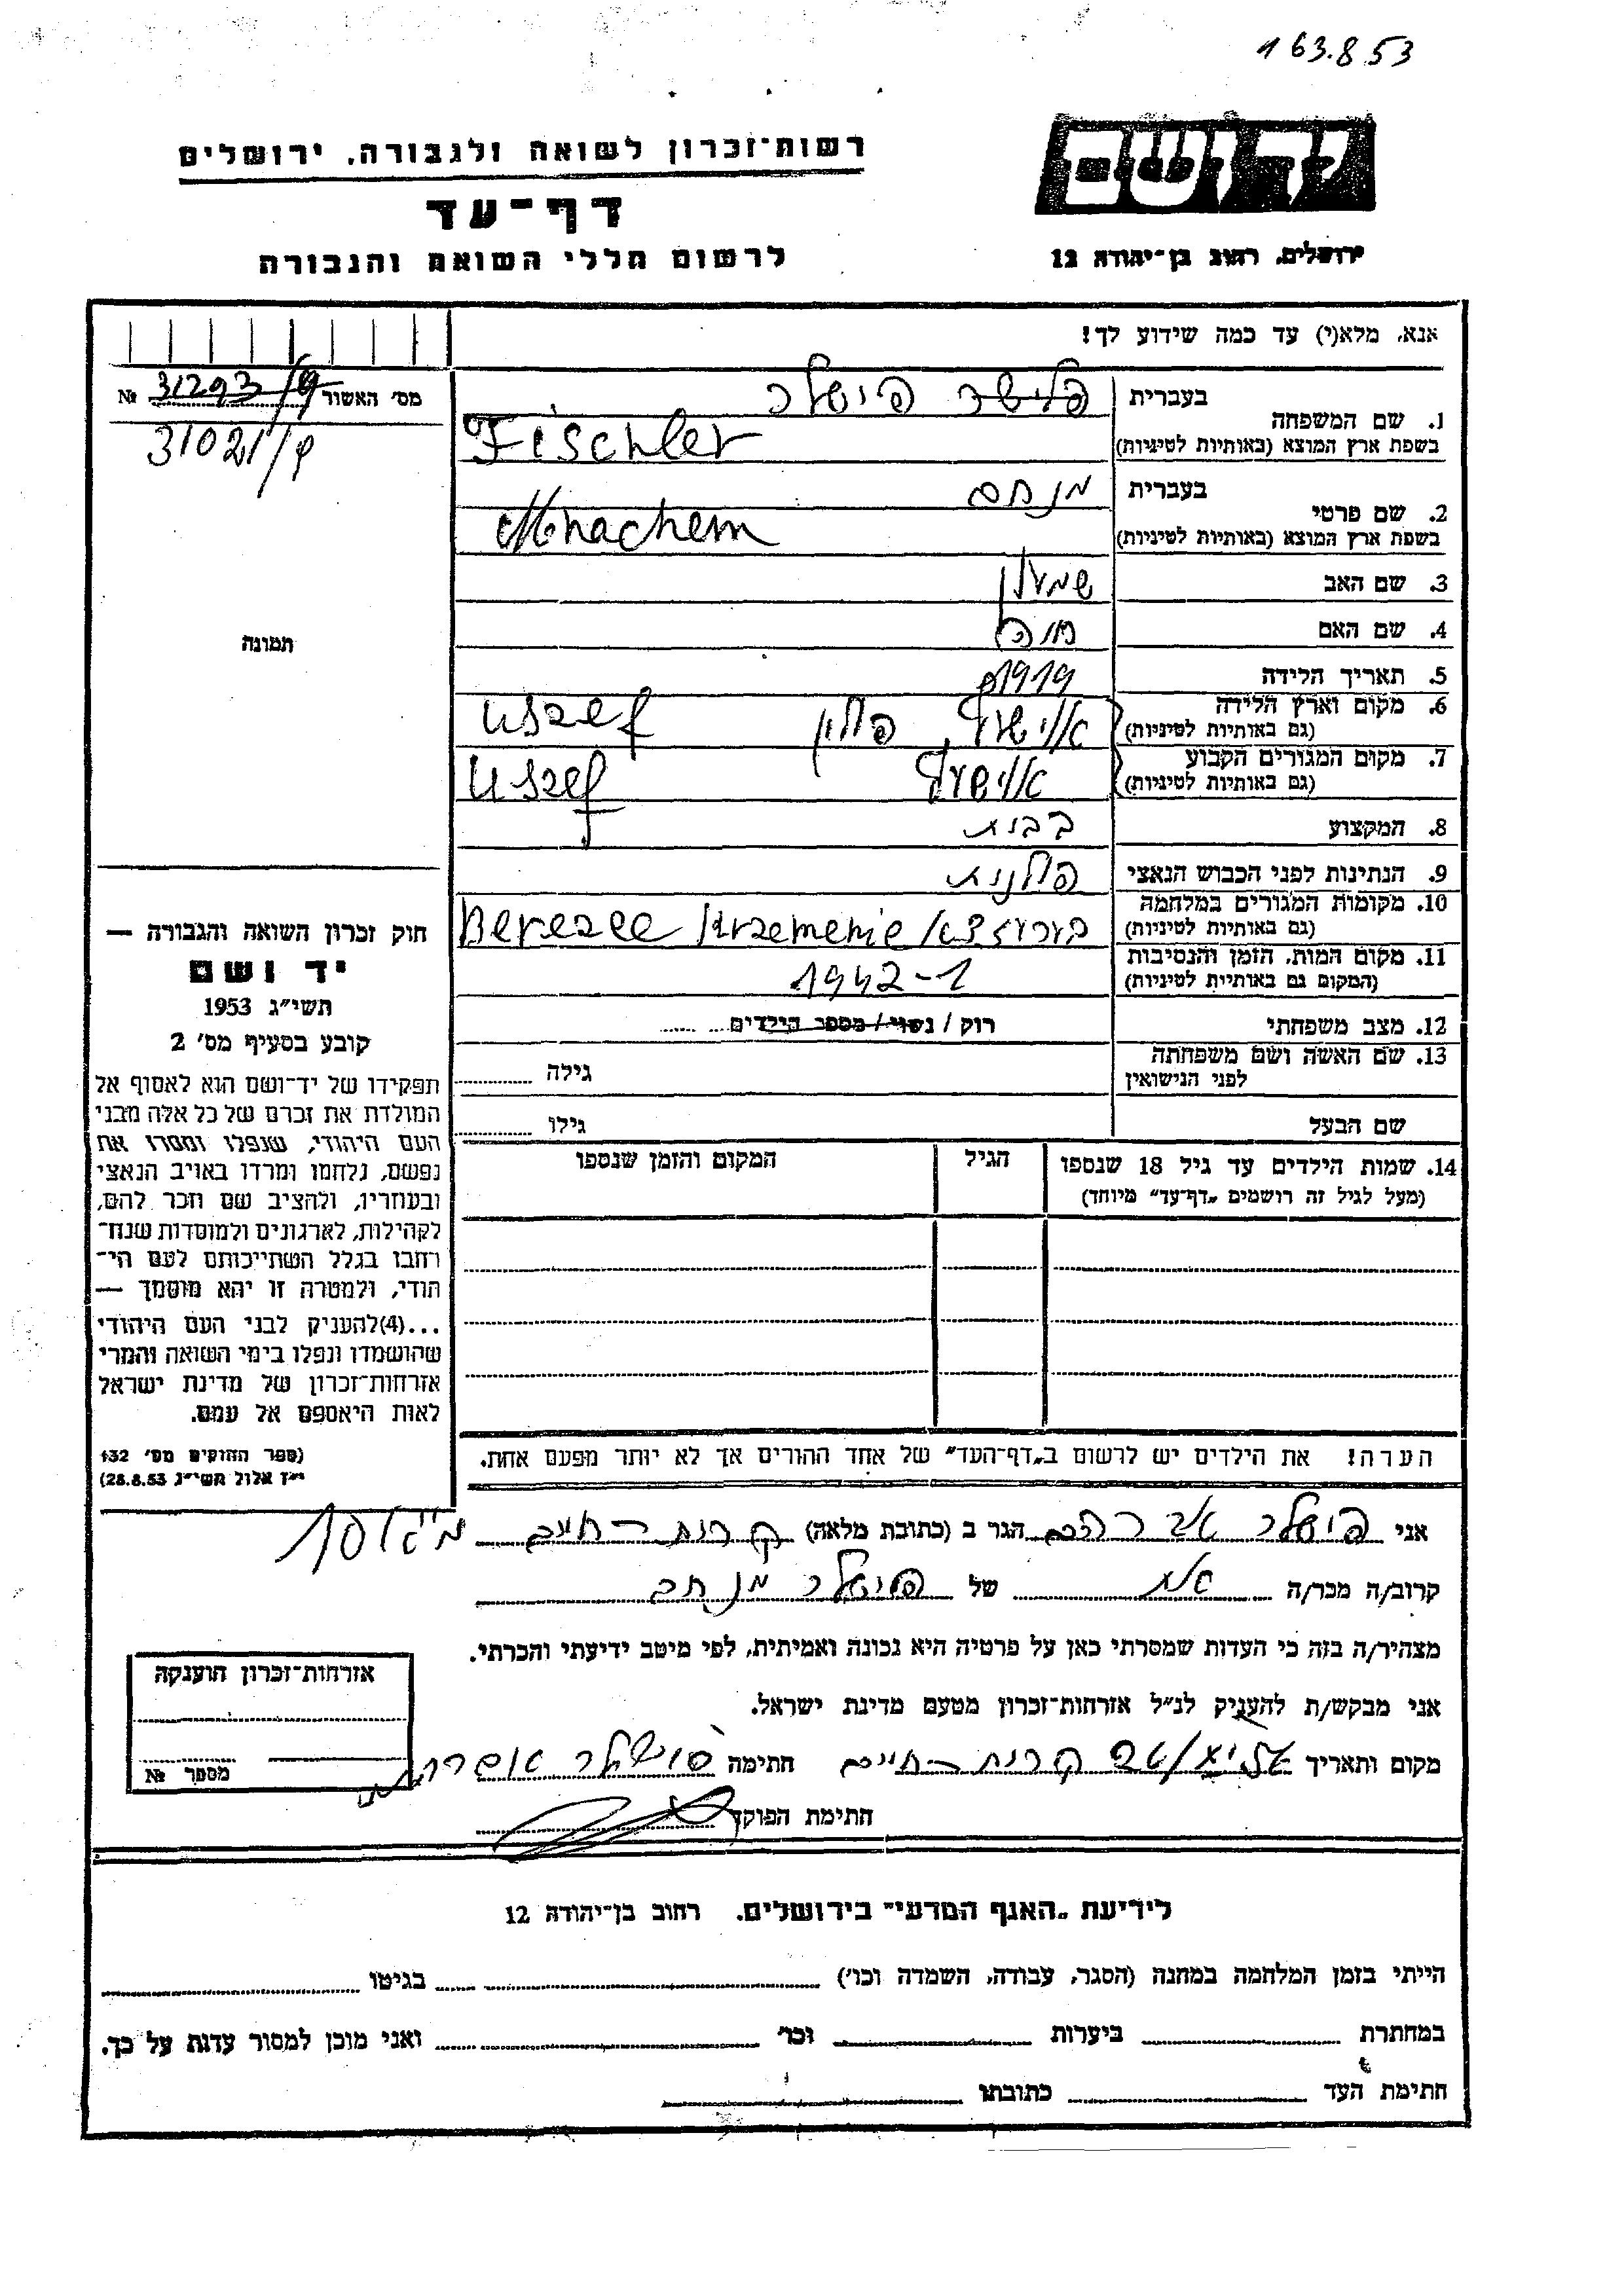 163.8 53
יד ושם
ירושלים, רחוב בן־יהודה 12
רשות־זכרון לשואה ולגבורה, ירושלים
דף־עד
לרשום חללי השואה והגבורה
אנא, מלא(י) עד כמה שידוע לך!
מס' האשור 31293/פ №
31021/פ
תמונה
1. שם המשפחה בעברית פישלר
בשפת ארץ המוצא (באותיות לטיניות) Fischler
2. שם פרטי בעברית מנחם
בשפת ארץ המוצא (באותיות לטיניות) Menachem
3. שם האב שמעון
4. שם האם
5. תאריך הלידה 1919
6. מקום וארץ הלידה פולין Uszef
(גם באותיות לטיניות)
7. מקום המגורים הקבוע Uszef
(גם באותיות לטיניות)
8. המקצוע
9. הנתינות לפני הכבוש הנאצי פולנית
10. מקומות המגורים במלחמה Berezce Krzemenie
(גם באותיות לטיניות)
11. מקום המות, הזמן והנסיבות 1942-1
(המקום גם באותיות לטיניות)
12. מצב משפחתי רוק / נשוי / מספר הילדים
13. שם האשה ושם משפחתה גילה
לפני הנישואין
שם הבעל גילו
14. שמות הילדים עד גיל 18 שנספו הגיל המקום והזמן שנספו
(מעל לגיל זה רושמים „דף־עד” מיוחד)
הערה! את הילדים יש לרשום ב„דף־העד” של אחד ההורים אך לא יותר מפעם אחת.
חוק זכרון השואה והגבורה —
יד ושם
תשי״ג 1953
קובע בסעיף מס' 2
תפקידו של יד־ושם הוא לאסוף אל
המולדת את זכרם של כל אלה מבני
העם היהודי, שנפלו ומסרו את
נפשם, נלחמו ומרדו באויב הנאצי
ובעוזריו, ולהציב שם וזכר להם,
לקהילות, לארגונים ולמוסדות שנח־
רבו בגלל השתייכותם לעם הי־
הודי, ולמטרה זו יהא מוסמך —
...(4)להעניק לבני העם היהודי
שהושמדו ונפלו בימי השואה והמרי
אזרחות־זכרון של מדינת ישראל
לאות היאספם אל עמם.
(ספר החוקים מס' 132
י״ז אלול תשי״ג 28.8.53)
אני פישלר אברהם הגר ב (כתובת מלאה) קרית חיים
קרוב/ה מכר/ה אח של פישלר מנחם
מצהיר/ה בזה כי העדות שמסרתי כאן על פרטיה היא נכונה ואמיתית, לפי מיטב ידיעתי והכרתי.
אני מבקש/ת להעניק לנ״ל אזרחות־זכרון מטעם מדינת ישראל.
מקום ותאריך קרית-חיים חתימה פישלר אברהם
חתימת הפוקד
אזרחות־זכרון הוענקה
מספר №
לידיעת „האגף המדעי” בירושלים. רחוב בן־יהודה 12
הייתי בזמן המלחמה במחנה (הסגר, עבודה, השמדה וכו') בגיטו
במחתרת ביערות וכו' ואני מוכן למסור עדות על כך.
חתימת העד כתובתו